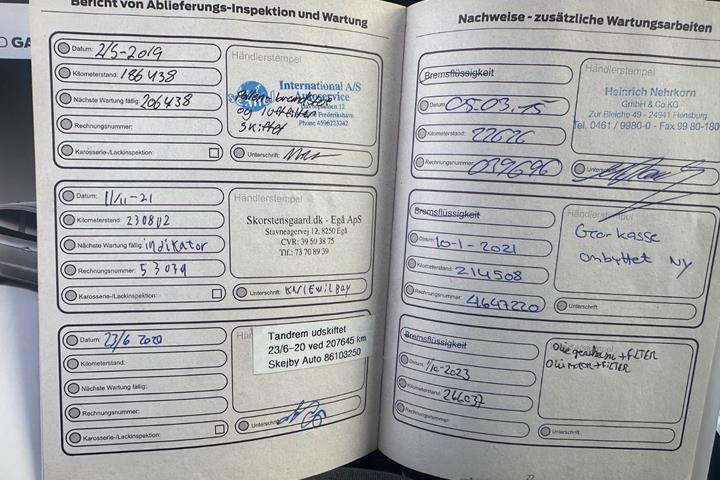 Bericht von Ablieferungs-Inspektion und Wartung
Datum: 2/5-2019
Kilometerstand: 186438
Nächste Wartung fällig: 206438
Rechnungsnummer:
Karosserie-/Lackinspektion:
Händlerstempel
International A/S
Autoservice
Frederikshavn
Phone 4596223242
og luftfilter
skiftet
Unterschrift:
Datum: 11/11-21
Kilometerstand: 230802
Nächste Wartung fällig: indikator
Rechnungsnummer: 53079
Karosserie-/Lackinspektion:
Händlerstempel
Skorstensgaard.dk - Egå ApS
Stavneagervej 12, 8250 Egå
CVR: 39 50 38 75
Tlf.: 73 70 89 39
Unterschrift: Karl Emil Bay
Datum: 23/6 2020
Kilometerstand:
Nächste Wartung fällig:
Rechnungsnummer:
Karosserie-/Lackinspektion:
Tandrem udskiftet
23/6-20 ved 207645 km
Skejby Auto 86103250
Unterschrift:
Nachweise - zusätzliche Wartungsarbeiten
Bremsflüssigkeit
Datum: 05.03.15
Kilometerstand: 22626
Rechnungsnummer: 039696
Händlerstempel
Heinrich Nehrkorn
GmbH & Co.KG
Zur Bleiche 49 - 24941 Flensburg
Tel. 0461 / 9980-0 - Fax 99 80-180
Bremsflüssigkeit
Datum: 10-1-2021
Kilometerstand: 214508
Rechnungsnummer: 4647220
Händlerstempel
Gearkasse
ombyttet NY
Unterschrift:
Bremsflüssigkeit
Datum: 1/10-2023
Kilometerstand: 266037
Rechnungsnummer:
Olie gearkasse + FILTER
Olie motor + FILTER
Unterschrift: